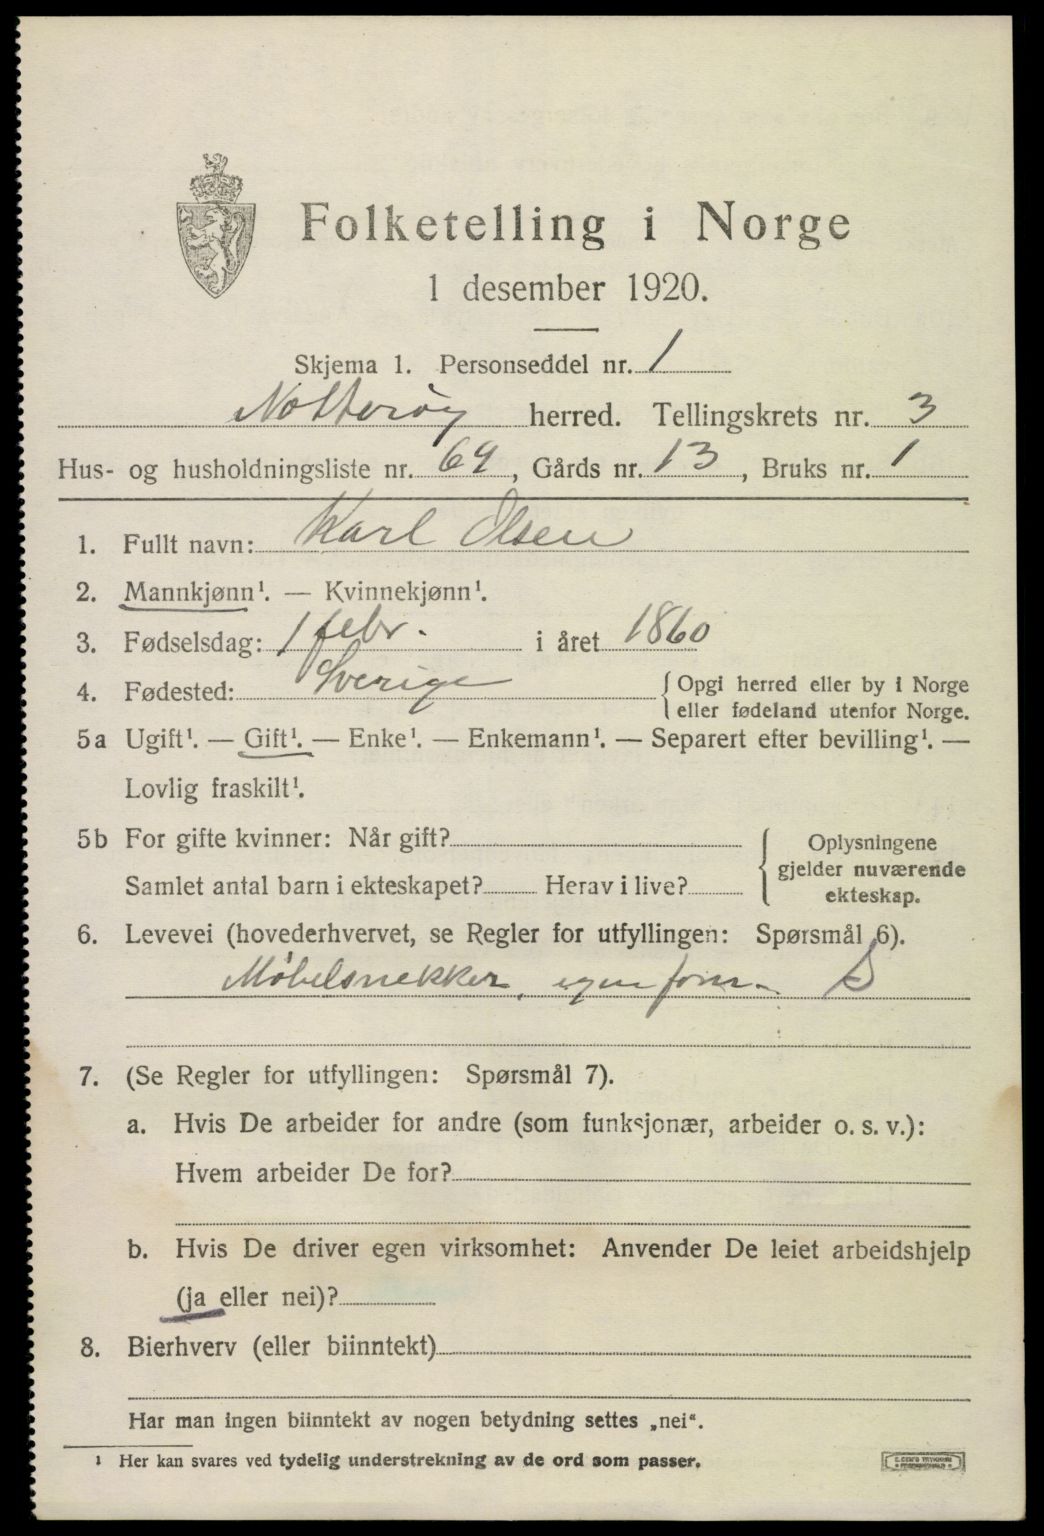 Folketelling i Norge
1 desember 1920.
Skjema 1. Personseddel nr. 1
Nøtterøy herred. Tellingskrets nr. 3
Hus- og husholdningsliste nr. 69, Gårds nr. 13, Bruks nr. 1
1. Fullt navn: Karl Olsen
2. Mannkjønn¹. — Kvinnekjønn¹.
3. Fødselsdag: 1 febr. i året 1860
4. Fødested: Sverige { Opgi herred eller by i Norge
eller fødeland utenfor Norge.
5a Ugift¹. — Gift¹. — Enke¹. — Enkemann¹. — Separert efter bevilling¹. —
Lovlig fraskilt¹.
5b For gifte kvinner: Når gift?
Samlet antal barn i ekteskapet? Herav i live?
{ Oplysningene
gjelder nuværende
ekteskap.
6. Levevei (hovederhvervet, se Regler for utfyllingen: Spørsmål 6).
Møbelsnekker, egen forr. S
7. (Se Regler for utfyllingen: Spørsmål 7).
a. Hvis De arbeider for andre (som funksjonær, arbeider o. s. v.):
Hvem arbeider De for?
b. Hvis De driver egen virksomhet: Anvender De leiet arbeidshjelp
(ja eller nei)?
8. Bierhverv (eller biinntekt)
Har man ingen biinntekt av nogen betydning settes „nei“.
¹ Her kan svares ved tydelig understrekning av de ord som passer.